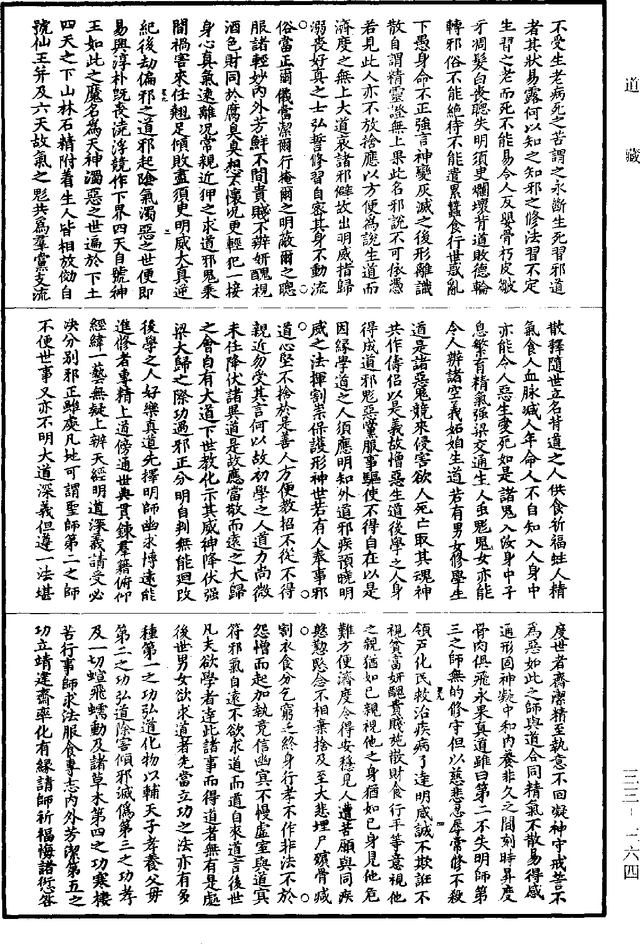 道藏
不受生老病死之苦謂之永斷生死習邪道
者其狀易露何以知之知邪之修法習不定
生習之老而死不能易令人反嬰骨朽皮皺
牙凋髮白喪聰失明須臾爛壞背道敗德輪
轉邪俗不能絕待不能遣累蠶食行世惑亂
下愚身命不正強言神變灰滅之後形離識
散自謂精靈證無上果此名邪說不可依憑
若見此人亦不放捨應以方便為說生道而
濟度之無上大道哀諸邪僻故出明威指歸
溺喪好真之士弘誓修習自密其身不動流
俗當正爾儀當潔爾行掩爾之明蔽爾之聰
服諸輕妙內外芳鮮不問貴賤不辨妍醜視
酒色財同於腐臭臭想不懷況更輕犯一接
身心真氣遠離況常親近狎之求道邪鬼乘
間禍害來任翹足傾敗盡須更明威大真逆
紀後劫偏邪之道邪起陰氣濁惡之世便即
易興淳朴既喪澆浮競作下界四天自號神
王如此之魔名為天神濁惡之世遍於下土
四天之下山林石精附着生人皆相放倣自
號仙王并及六天故氣之鬼共為羣黨支流
散釋隨世立名背道之人供食祈福蛀人精
氣食人血脉減人年命人不自知入人身中
亦能令人惡生愛死如是諸鬼入汝身中子
息繁育精氣強梁交通生人虫鬼鬼女亦能
令人辨諸空義妬娼生道若有男女修學生
道是諸惡鬼競來侵害欲人死亡取其魂神
共作儔侶以是義故憎惡生道後學之人身
得成道邪鬼惡黨服事驅使不得自在以是
因緣學道之人須應明知外道邪疾預曉明
威之法揮割祟保護形神世若有人奉事邪
道心堅不捨於是善人方便教招不從不得
親近勿受其言何以故初學之人道力尚微
未任降伏諸異道是故應當散而遠之大歸
之會自有大道下世教化示其威神降伏強
梁大歸之際功過邪正分明自判無能廻改
後學之人好樂真道先擇明師幽求博遠能
進修者專精上道傍通世典貫鍊羣籍俯仰
經緯一藝無疑上辨天經明道深義請受必
決分別邪正雖處凡地可謂聖師第二之師
不便世事又亦不明大道深義但遵一法堪
度世者齋潔精至執意不回凝神守戒苦不
為惡如此之師與道合同精氣不散易得感
通形固神凝中和內養非久之間刻時昇度
骨肉俱飛永果真道雖曰第二不失明師第
三之師無的修守但以慈悲忍辱常修不殺
領戶化民救治疾病了達明威誠不欺誑不
視貧富妍醜貴賤施散財食行平等意視他
之親猶如己親視他之身猶如己身見他危
難方便濟度令得安穩見人遭苦願與同疾
慇懃愍念不相棄捨及至大悲埋尸殯骨減
割衣食分乞窮乏終身行孝不作非法不於
怨憎而起加執竟信幽冥不慢虛室與道冥
符邪氣自遠不欲求道而道自來道言後世
凡夫欲學者達此諸事而得道者無有是處
後世男女欲求道者先當立功之法亦有多
種第一之功弘道化物以輔天子孝養父母
第二之功弘道除害傾邪滅偽第三之功孝
及一切蝖飛蠕動及諸草木第四之功寒棲
苦行事師求法服食專志內外芳潔第五之
功立靖建齋率化有緣請師祈福悔諸愆咎
三三－二六四